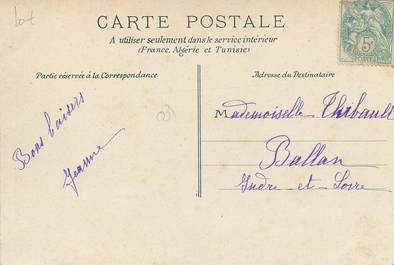 CARTE POSTALE
A utiliser seulement dans le service intérieur
(France, Algérie et Tunisie)
Partie réservée à la Correspondance
Adresse du Destinataire
Bons baisers
Jeanne
Mademoiselle Thibault
Ballan
Indre et Loire
5